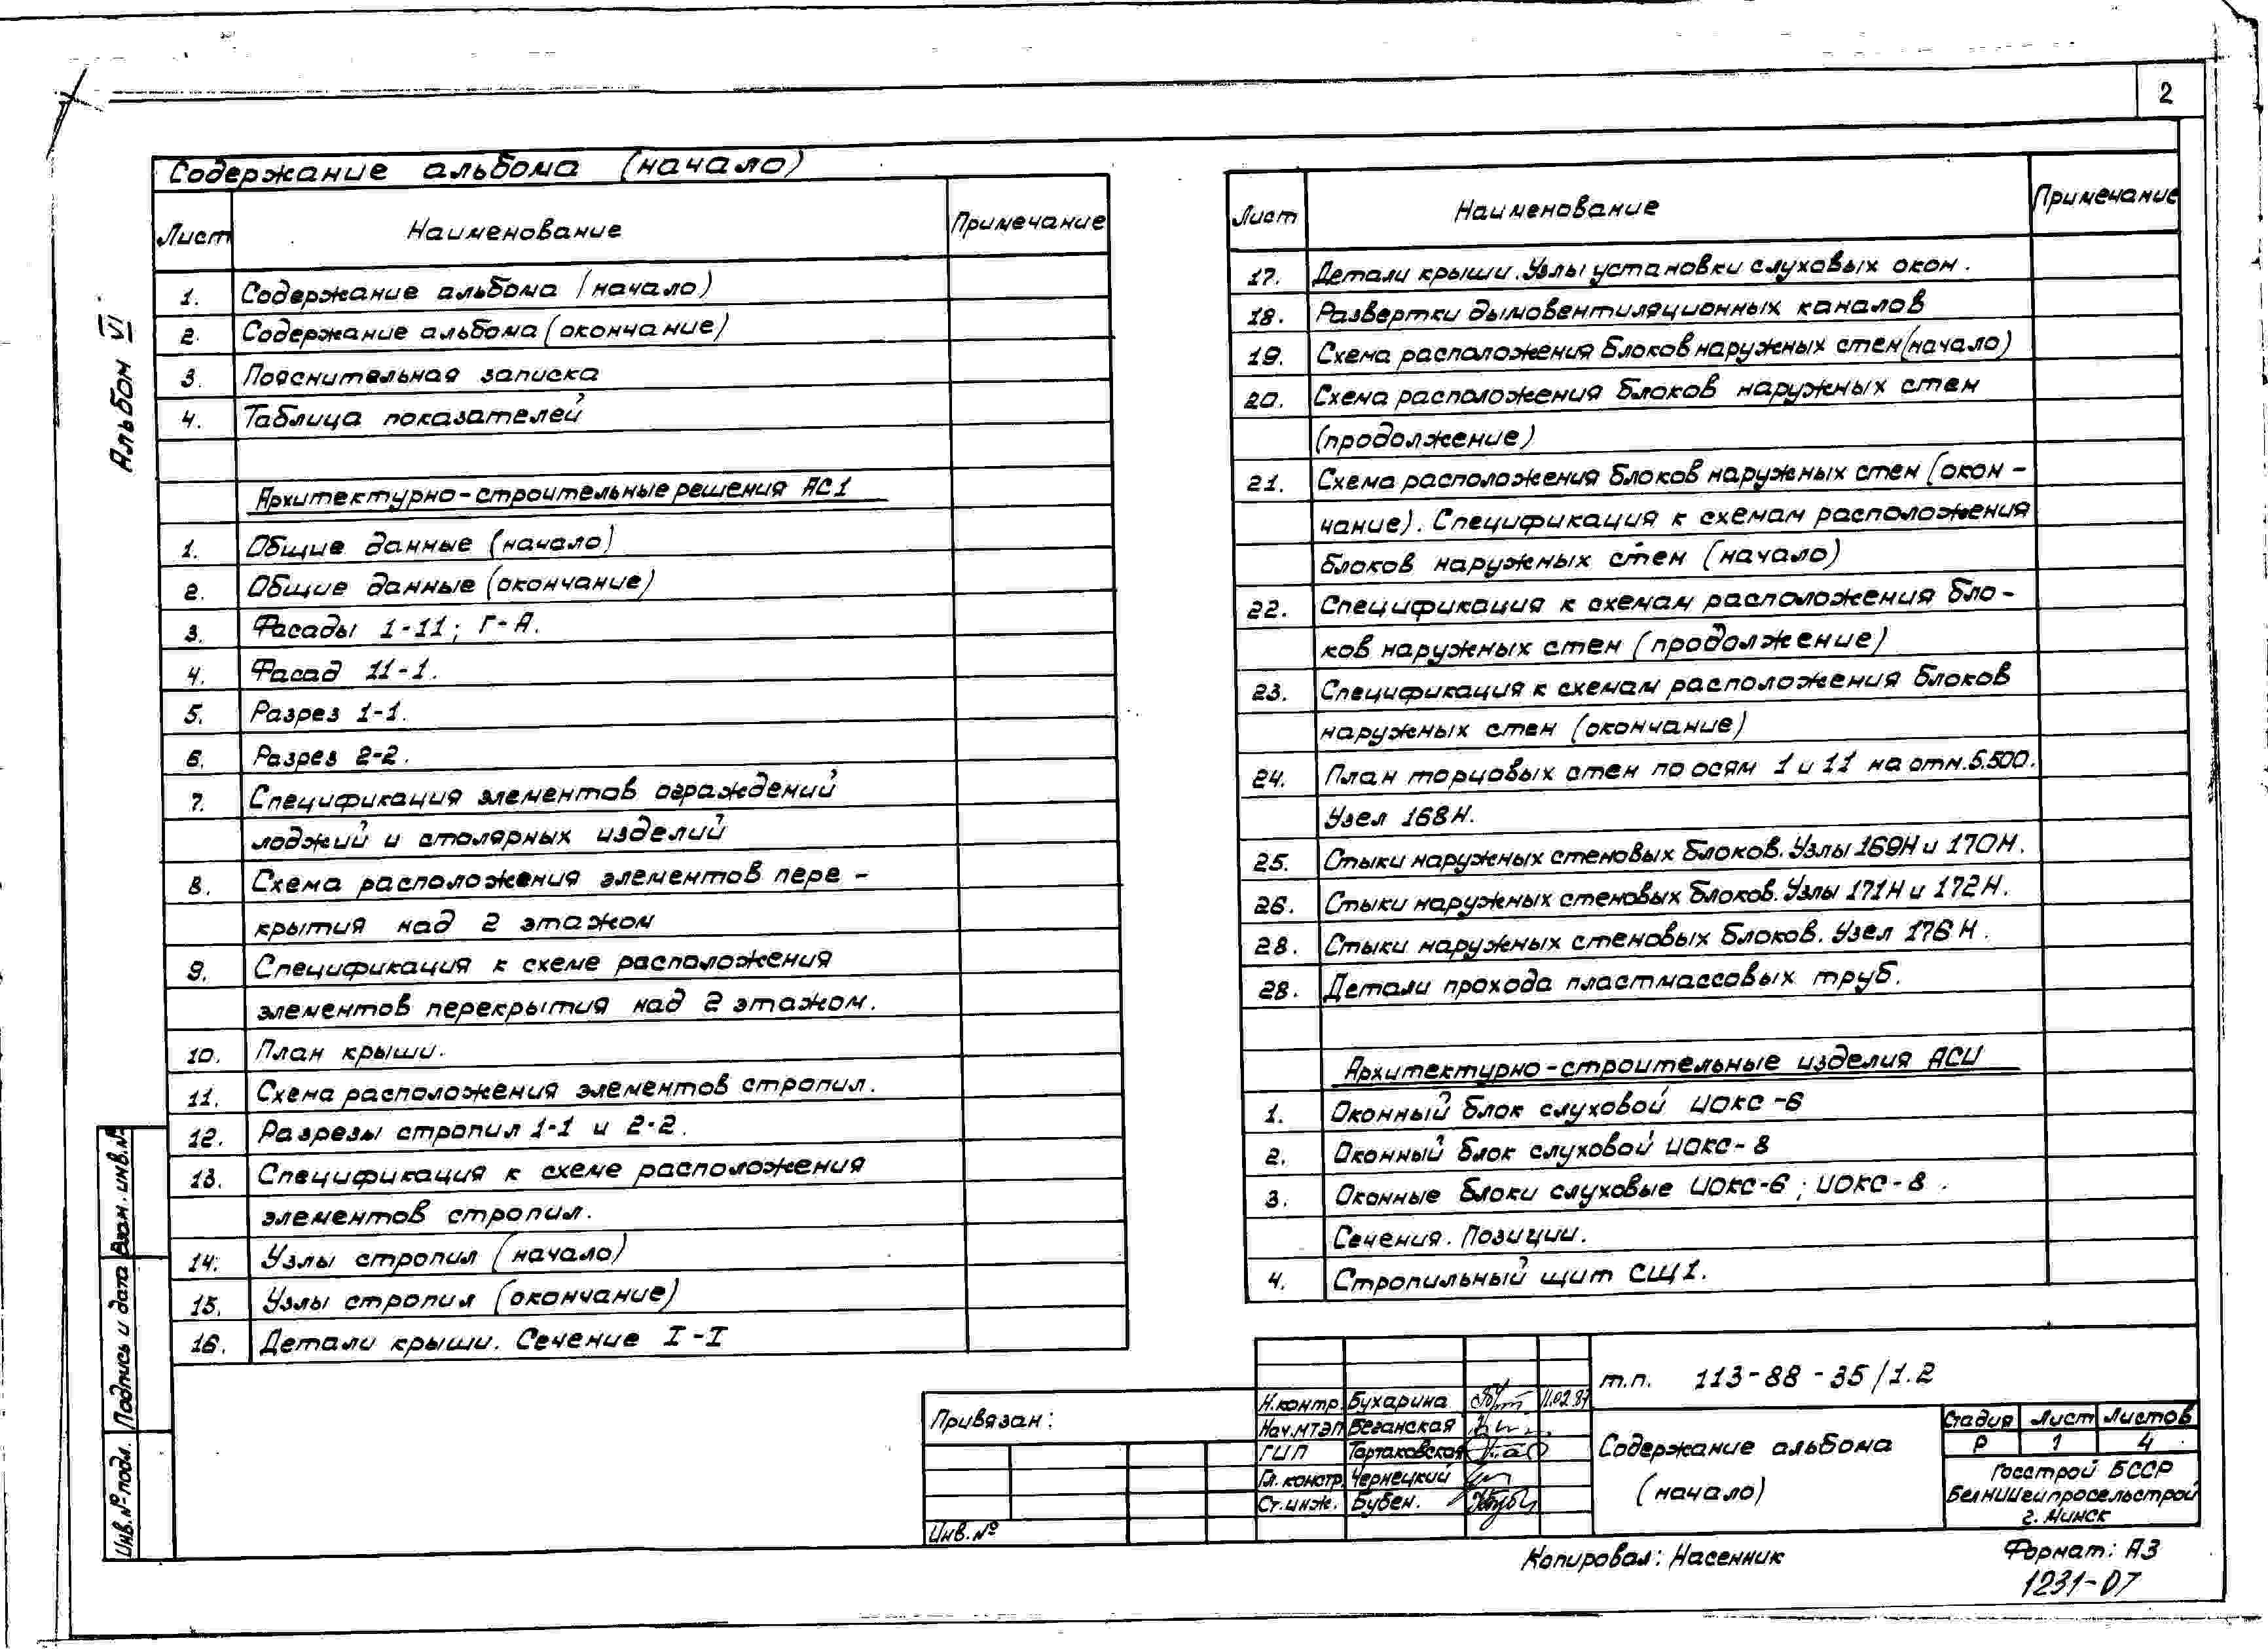 2
Альбом VI
Содержание альбома (начало)
Лист Наименование Примечание
1. Содержание альбома (начало)
2. Содержание альбома (окончание)
3. Пояснительная записка
4. Таблица показателей
Архитектурно-строительные решения АС1
1. Общие данные (начало)
2. Общие данные (окончание)
3. Фасады 1-11; Г-А.
4. Фасад 11-1.
5. Разрез 1-1.
6. Разрез 2-2.
7. Спецификация элементов ограждений
лоджий и столярных изделий
8. Схема расположения элементов пере-
крытия над 2 этажом
9. Спецификация к схеме расположения
элементов перекрытия над 2 этажом.
10. План крыши.
11. Схема расположения элементов стропил.
12. Разрезы стропил 1-1 и 2-2.
13. Спецификация к схеме расположения
элементов стропил.
14. Узлы стропил (начало)
15. Узлы стропил (окончание)
16. Детали крыши. Сечение I-I
Лист Наименование Примечание
17. Детали крыши. Узлы установки слуховых окон.
18. Развертки дымовентиляционных каналов
19. Схема расположения блоков наружных стен (начало)
20. Схема расположения блоков наружных стен
(продолжение)
21. Схема расположения блоков наружных стен (окон-
чание). Спецификация к схемам расположения
блоков наружных стен (начало)
22. Спецификация к схемам расположения бло-
ков наружных стен (продолжение)
23. Спецификация к схемам расположения блоков
наружных стен (окончание)
24. План торцовых стен по осям 1 и 11 на отм. 5.500.
Узел 168Н.
25. Стыки наружных стеновых блоков. Узлы 169Н и 170Н.
26. Стыки наружных стеновых блоков. Узлы 171Н и 172Н.
28. Стыки наружных стеновых блоков. Узел 176Н.
28. Детали прохода пластмассовых труб.
Архитектурно-строительные изделия АСИ
1. Оконный блок слуховой ИОКС-6
2. Оконный блок слуховой ИОКС-8
3. Оконные блоки слуховые ИОКС-6; ИОКС-8.
Сечения. Позиции.
4. Стропильный щит СЩ1.
Взам. инв. №
Подпись и дата
Инв. № подл.
Привязан:
Инв. №
Н.контр. Бухарина 11.02.87
Нач.МТЭП Беганская
ГИП Тартаковская
Гл. констр. Чернецкий
Ст.инж. Бубен.
т.п. 113-88-35/1.2
Содержание альбома
(начало)
Стадия Лист Листов
Р 1 4
Госстрой БССР
БелНИИгипросельстрой
г. Минск
Копировал: Насенник
Формат: А3
1231-07